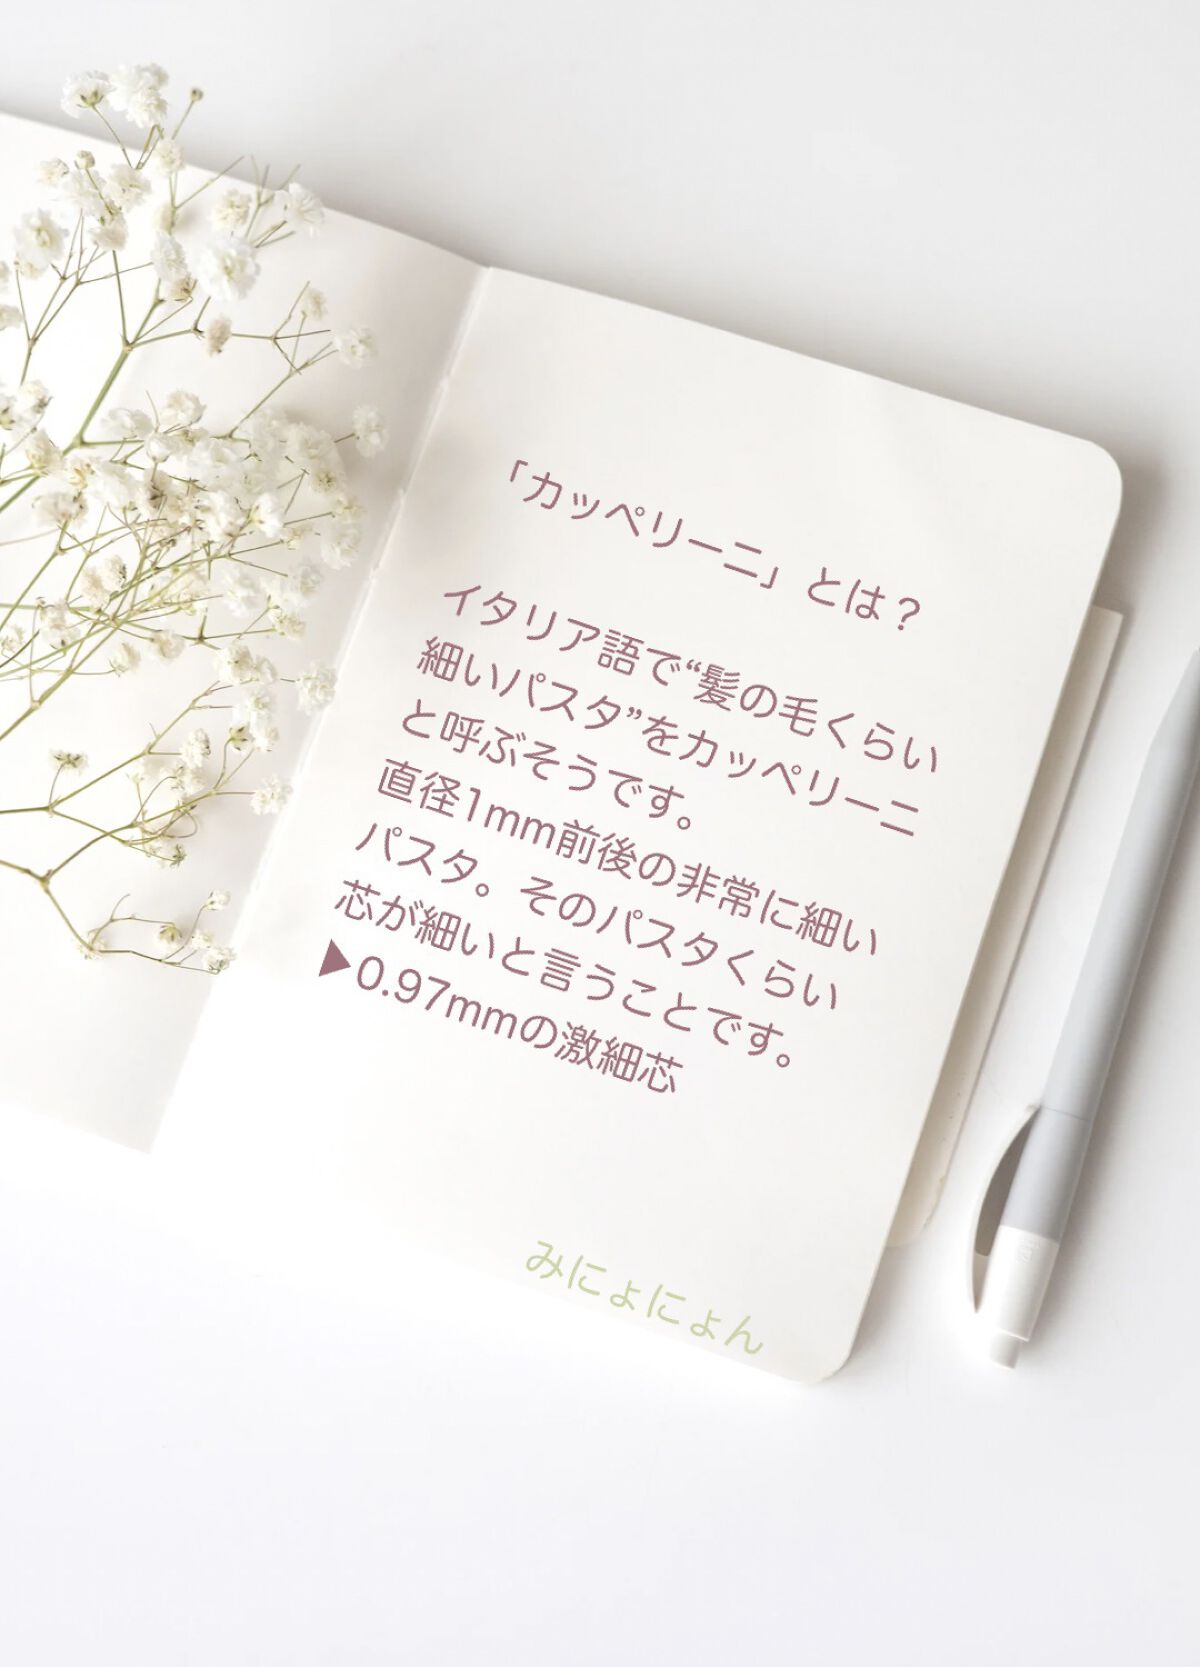 「カッペリーニ」とは？
イタリア語で“髪の毛くらい
細いパスタ”をカッペリーニ
と呼ぶそうです。
直径1mm前後の非常に細い
パスタ。そのパスタくらい
芯が細いと言うことです。
▶0.97mmの激細芯
みにょにょん